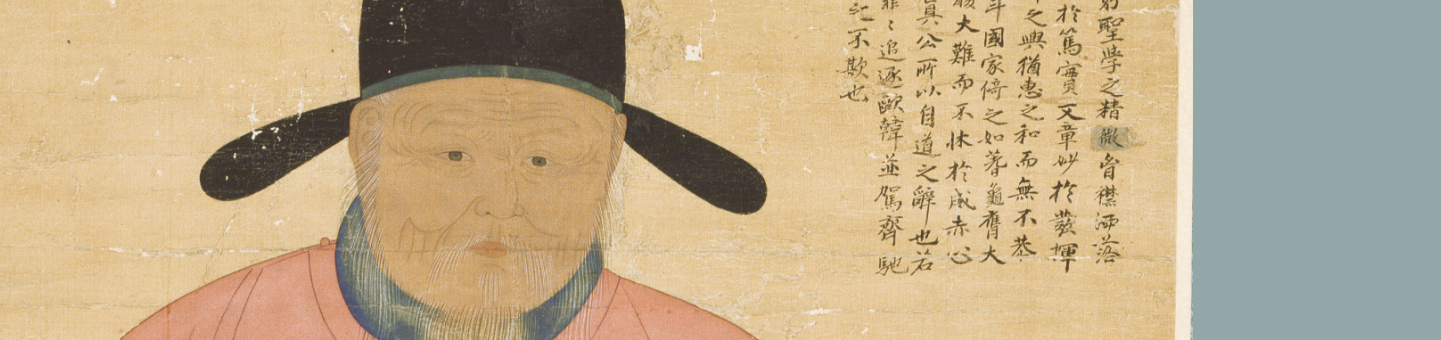 聖學之精微胷襟洒落
於篤實文章妙於發揮
之興猶惠之和而無不恭
斗國家倚之如蓍龜膺大
大難而不怵於威赤心
真公所以自道之辭也若
追逐歐韓並駕齊馳
不欺也